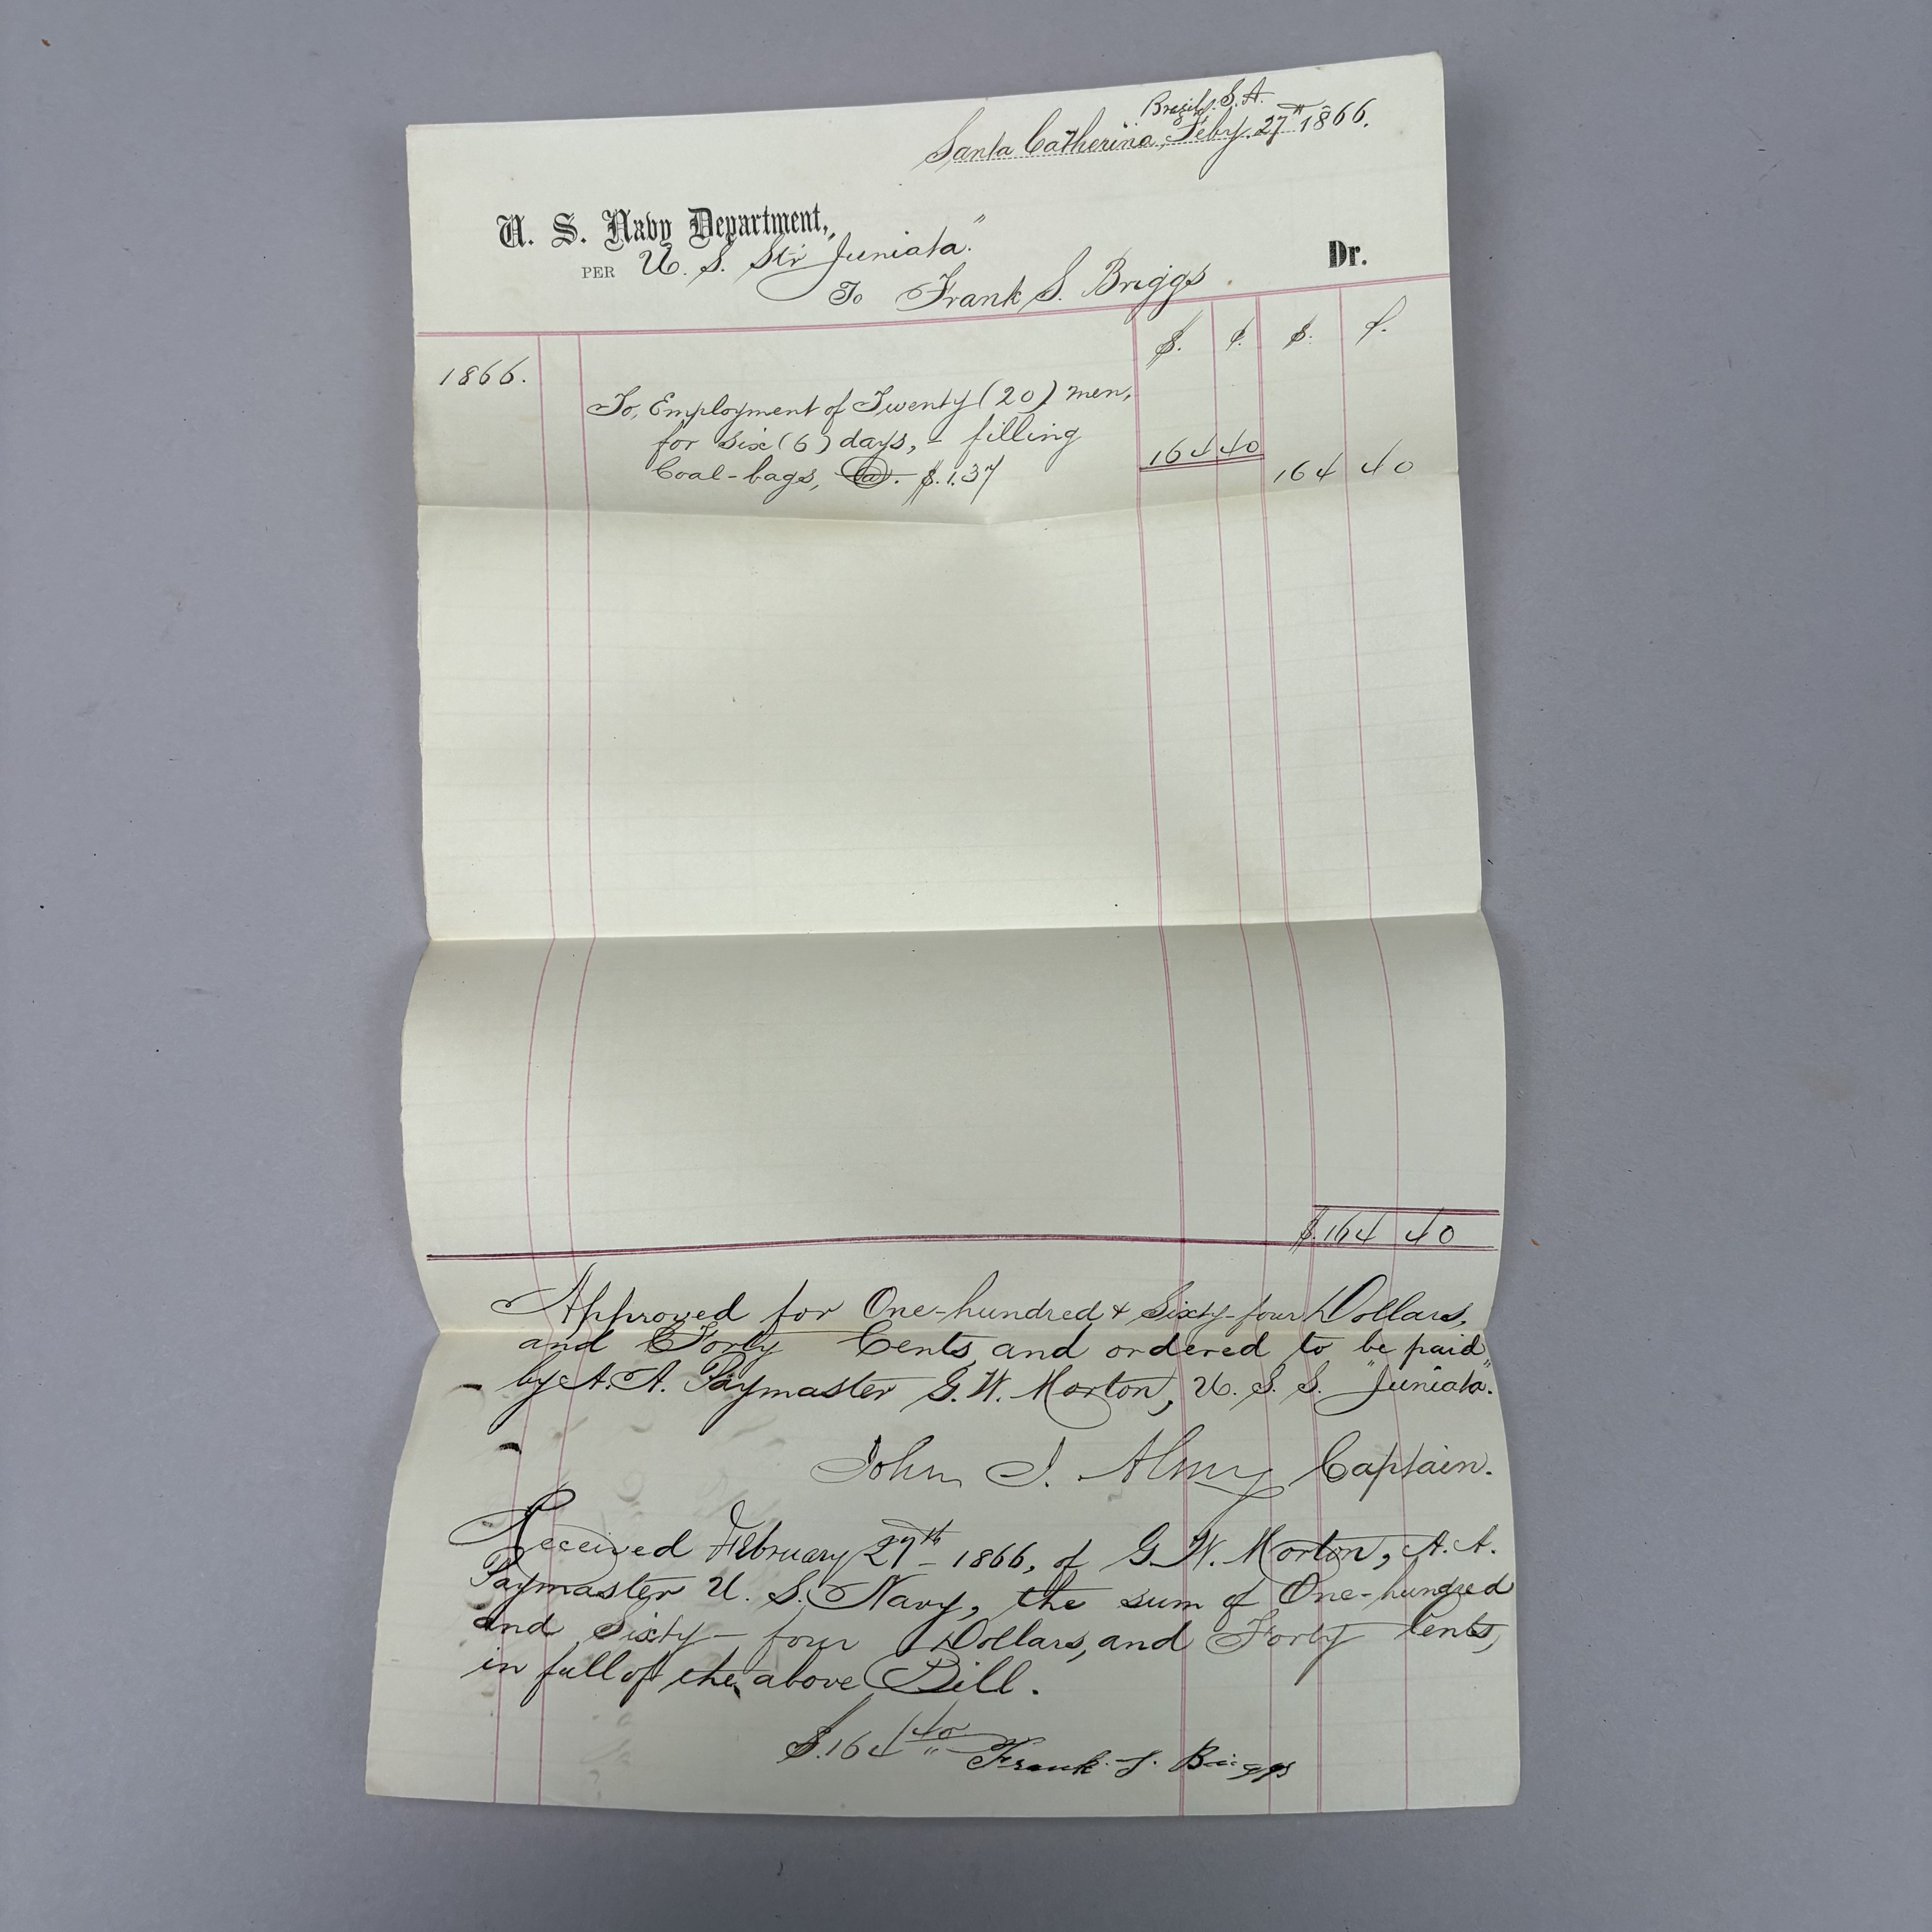 Brazil, S. A.
Santa Catherina, Feby. 27th 1866.
U. S. Navy Department,
PER U. S. Str "Juniata" Dr.
To Frank S. Briggs
$. ¢. $. ¢.
1866.
To, Employment of Twenty (20) men,
for six (6) days, - filling
Coal-bags, @. $.1.37 164 40 164 40
$.164 40
Approved for One-hundred & Sixty-four Dollars,
and Forty Cents, and ordered to be paid
by A. A. Paymaster G. W. Morton, U. S. S. "Juniata".
John J. Almy Captain.
Received February 27th - 1866, of G. W. Morton, A. A.
Paymaster U. S. Navy, the sum of One-hundred
and Sixty-four Dollars, and Forty Cents,
in full of the above Bill.
$.164 40
Frank S. Briggs